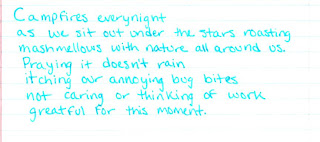 Campfires everynight
as we sit out under the stars roasting
mashmellows with nature all around us.
Praying it doesn't rain
itching our annoying bug bites
not caring or thinking of work
greatful for this moment.